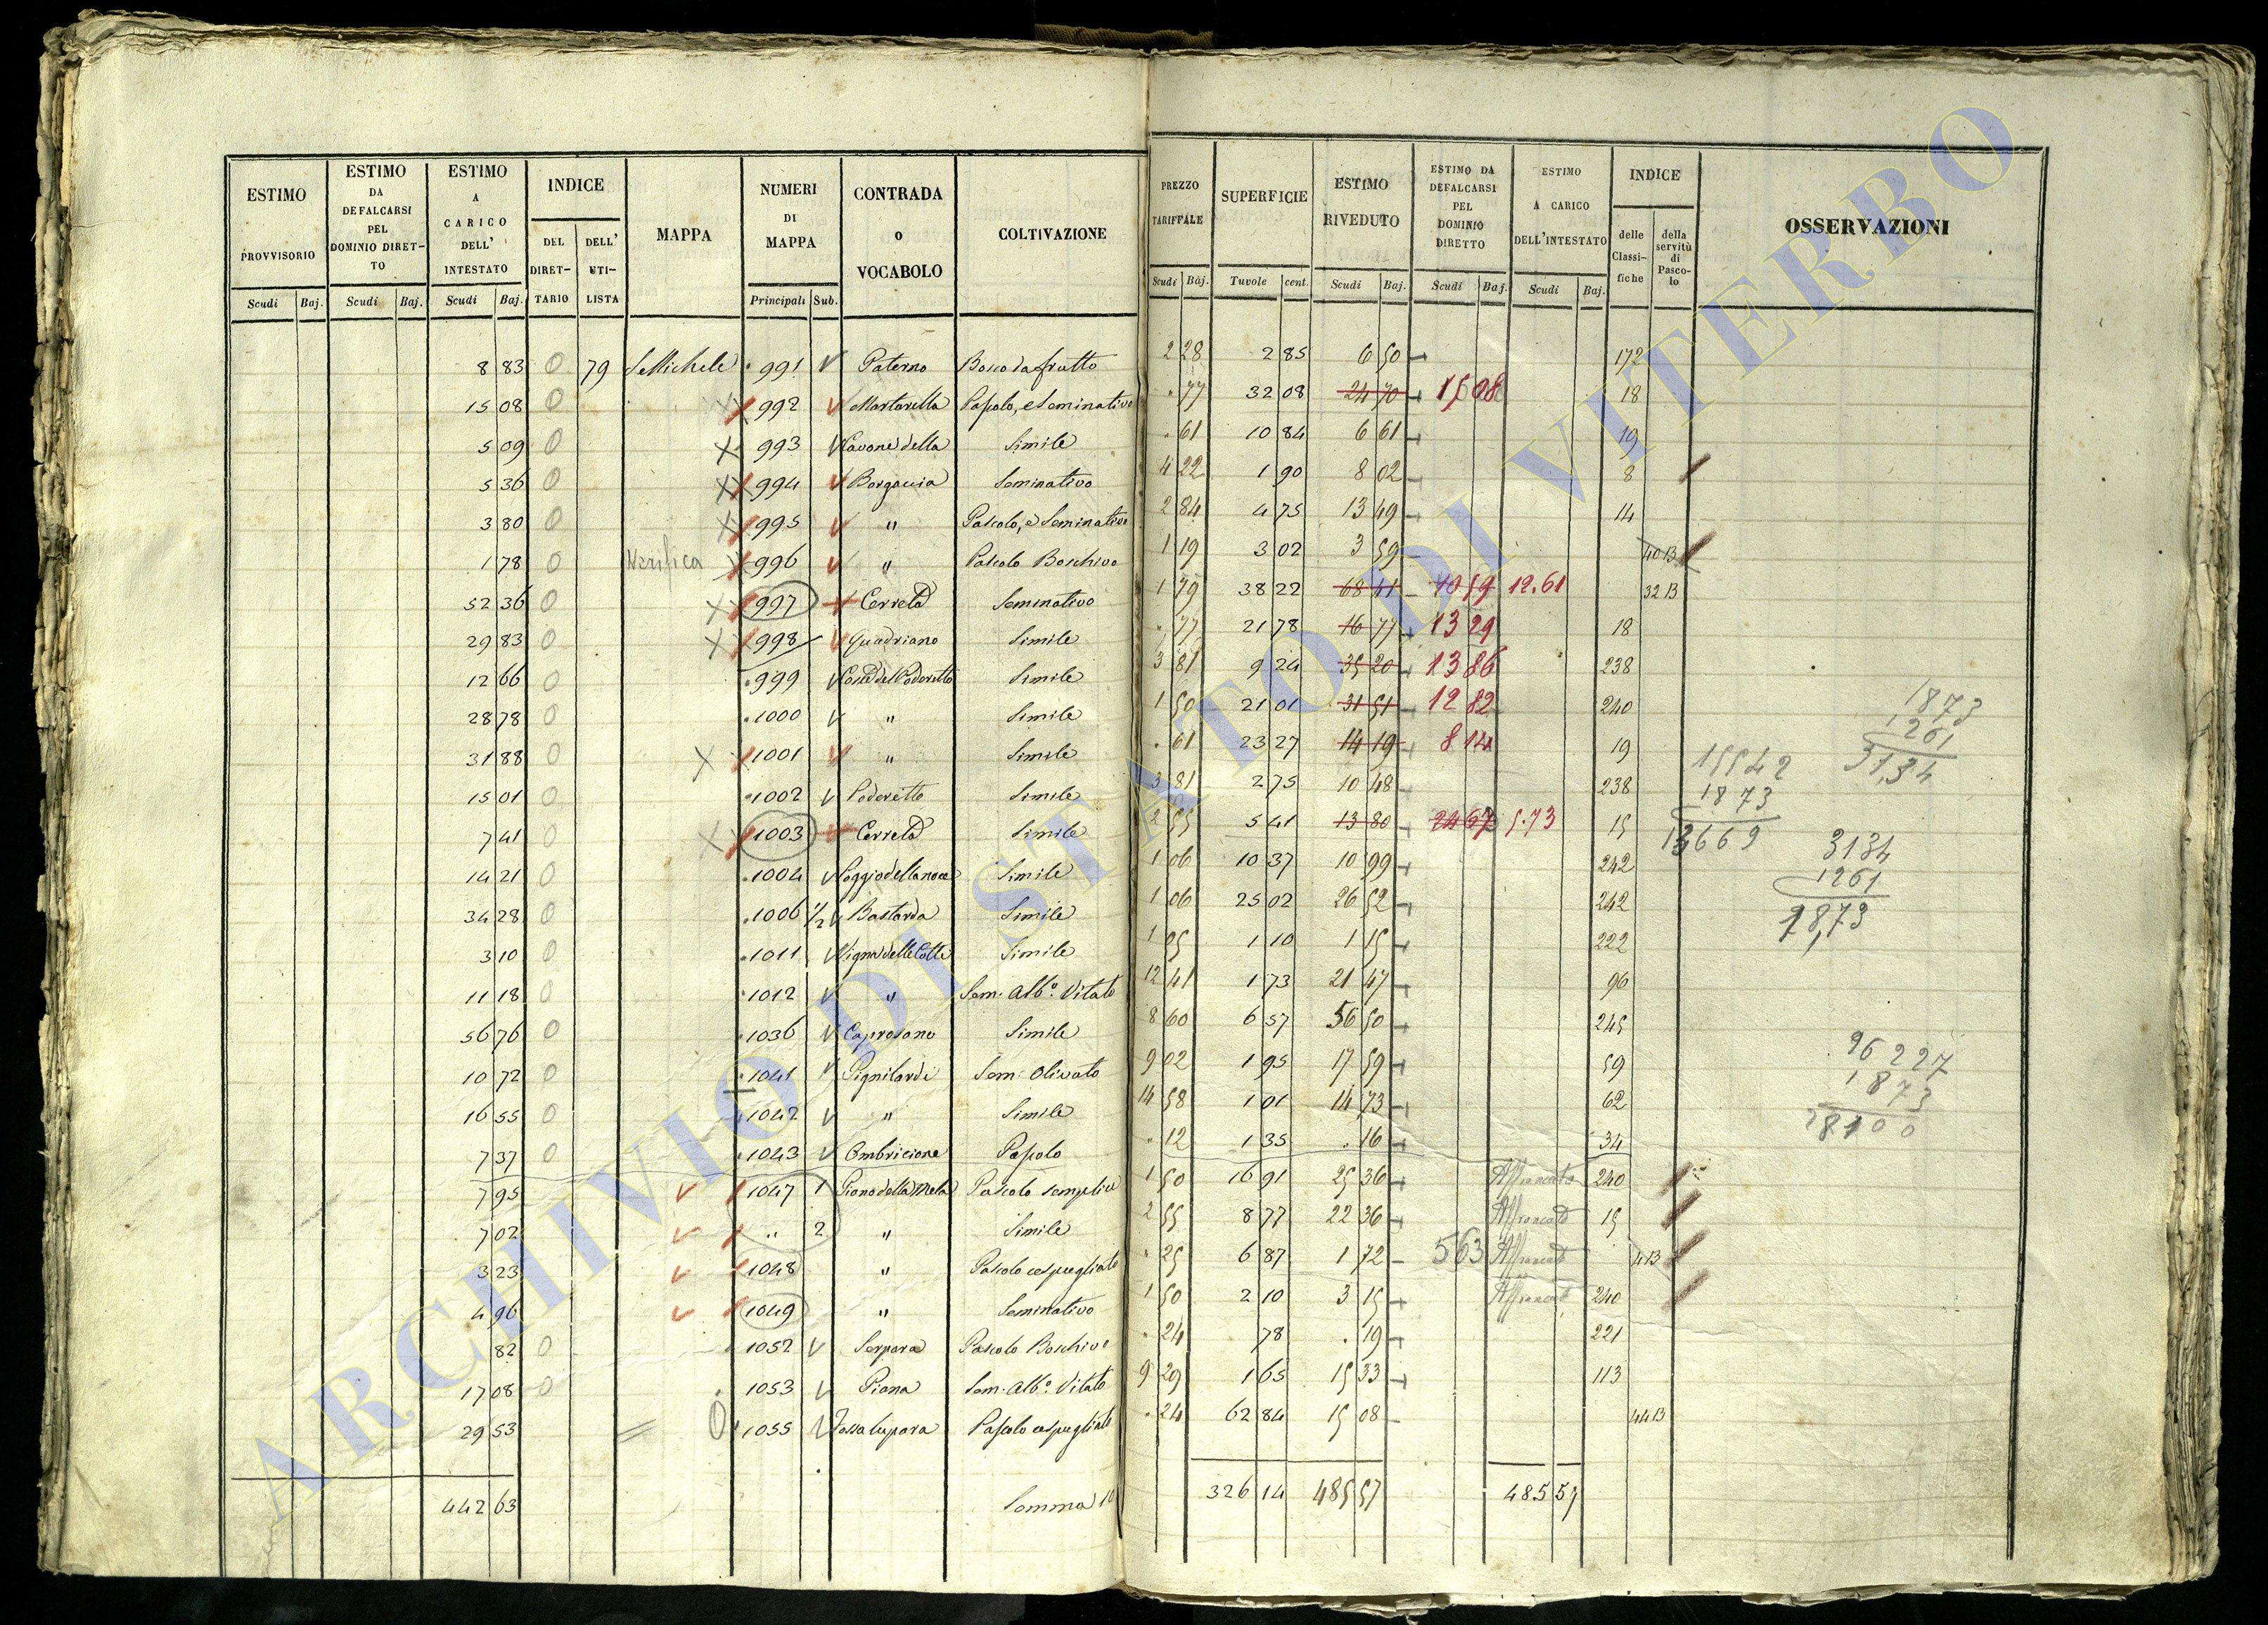 ESTIMO PROVVISORIO Scudi Baj.
ESTIMO DA DEFALCARSI PEL DOMINIO DIRET-TO Scudi Baj.
ESTIMO A CARICO DELL' INTESTATO Scudi Baj.
INDICE DEL DIRET-TARIO DELL' UTI-LISTA
MAPPA
NUMERI DI MAPPA Principali Sub.
CONTRADA o VOCABOLO
COLTIVAZIONE
PREZZO TARIFFALE Scudi Baj.
SUPERFICIE Tuvole cent.
ESTIMO RIVEDUTO Scudi Baj.
ESTIMO DA DEFALCARSI PEL DOMINIO DIRETTO Scudi Baj.
ESTIMO A CARICO DELL'INTESTATO Scudi Baj.
INDICE delle Classi-fiche della servitù di Pasco-lo
OSSERVAZIONI
8 83 0 79 S. Michele 991 Paterno Bosco da frutto 2 28 2 85 6 50 172
15 08 0 992 Mortarella Pascolo, e Seminativo . 77 32 08 24 70 15 08 18
5 09 0 993 Cavone della Simile . 61 10 84 6 61 19
5 36 0 994 Borgaccia Seminativo 4 22 1 90 8 02 8
3 80 0 995 " Pascolo, e Seminativo 2 84 4 75 13 49 14
1 78 0 Verifica 996 " Pascolo Boschivo 1 19 3 02 3 59 40 B
52 36 0 997 Cerreto Seminativo 1 79 38 22 68 41 40 59 12.61 32 B
29 83 0 998 Quadriano Simile . 77 21 78 16 77 13 29 18
12 66 0 999 Cone del Poderetto Simile 3 81 9 24 35 20 13 86 238
28 78 0 1000 " Simile 1 50 21 01 31 51 12 82 240
31 88 0 1001 " Simile . 61 23 27 14 19 8 14 19
15 01 0 1002 Poderetto Simile 3 81 2 75 10 48 238
7 41 0 1003 Cerreto Simile 2 55 5 41 13 80 24 67 5.73 15
14 21 0 1004 Poggio della noce Simile 1 06 10 37 10 99 242
34 28 0 1006 1/2 Bastarda Simile 1 06 25 02 26 52 242
3 10 0 1011 Vigna delle Cotte Simile 1 05 1 10 1 15 222
11 18 0 1012 " Sem. Alb.o Vitato 12 41 1 73 21 47 96
56 76 0 1036 Caprosano Simile 8 60 6 57 56 50 245
10 72 0 1041 Pignilardi Sem. Olivato 9 02 1 95 17 59 59
16 55 0 1042 " Simile 14 58 1 01 14 73 62
7 37 0 1043 Ombricione Pascolo . 12 1 35 . 16 34
7 95 1047 1 Piano della Mela Pascolo semplice 1 50 16 91 25 36 Affrancato 240
7 02 " 2 " Simile 2 55 8 77 22 36 Affrancato 15
3 23 1048 " Pascolo cespugliato . 25 6 87 1 72 563 Affrancato 4 B
4 96 1049 " Seminativo 1 50 2 10 3 15 Affrancato 240
82 0 1052 Serpara Pascolo Boschivo . 24 78 . 19 221
17 08 0 1053 Piana Sem. Alb.o Vitato 9 29 1 65 15 33 113
29 53 0 1055 Fossa lupara Pascolo cespugliato . 24 62 84 15 08 44 B
442 63 Somma 326 14 485 57 485 57
1873
1261
31,34
15542
1873
13669
3134
1261
18,73
26227
1873
28100
ARCHIVIO DI STATO DI VITERBO